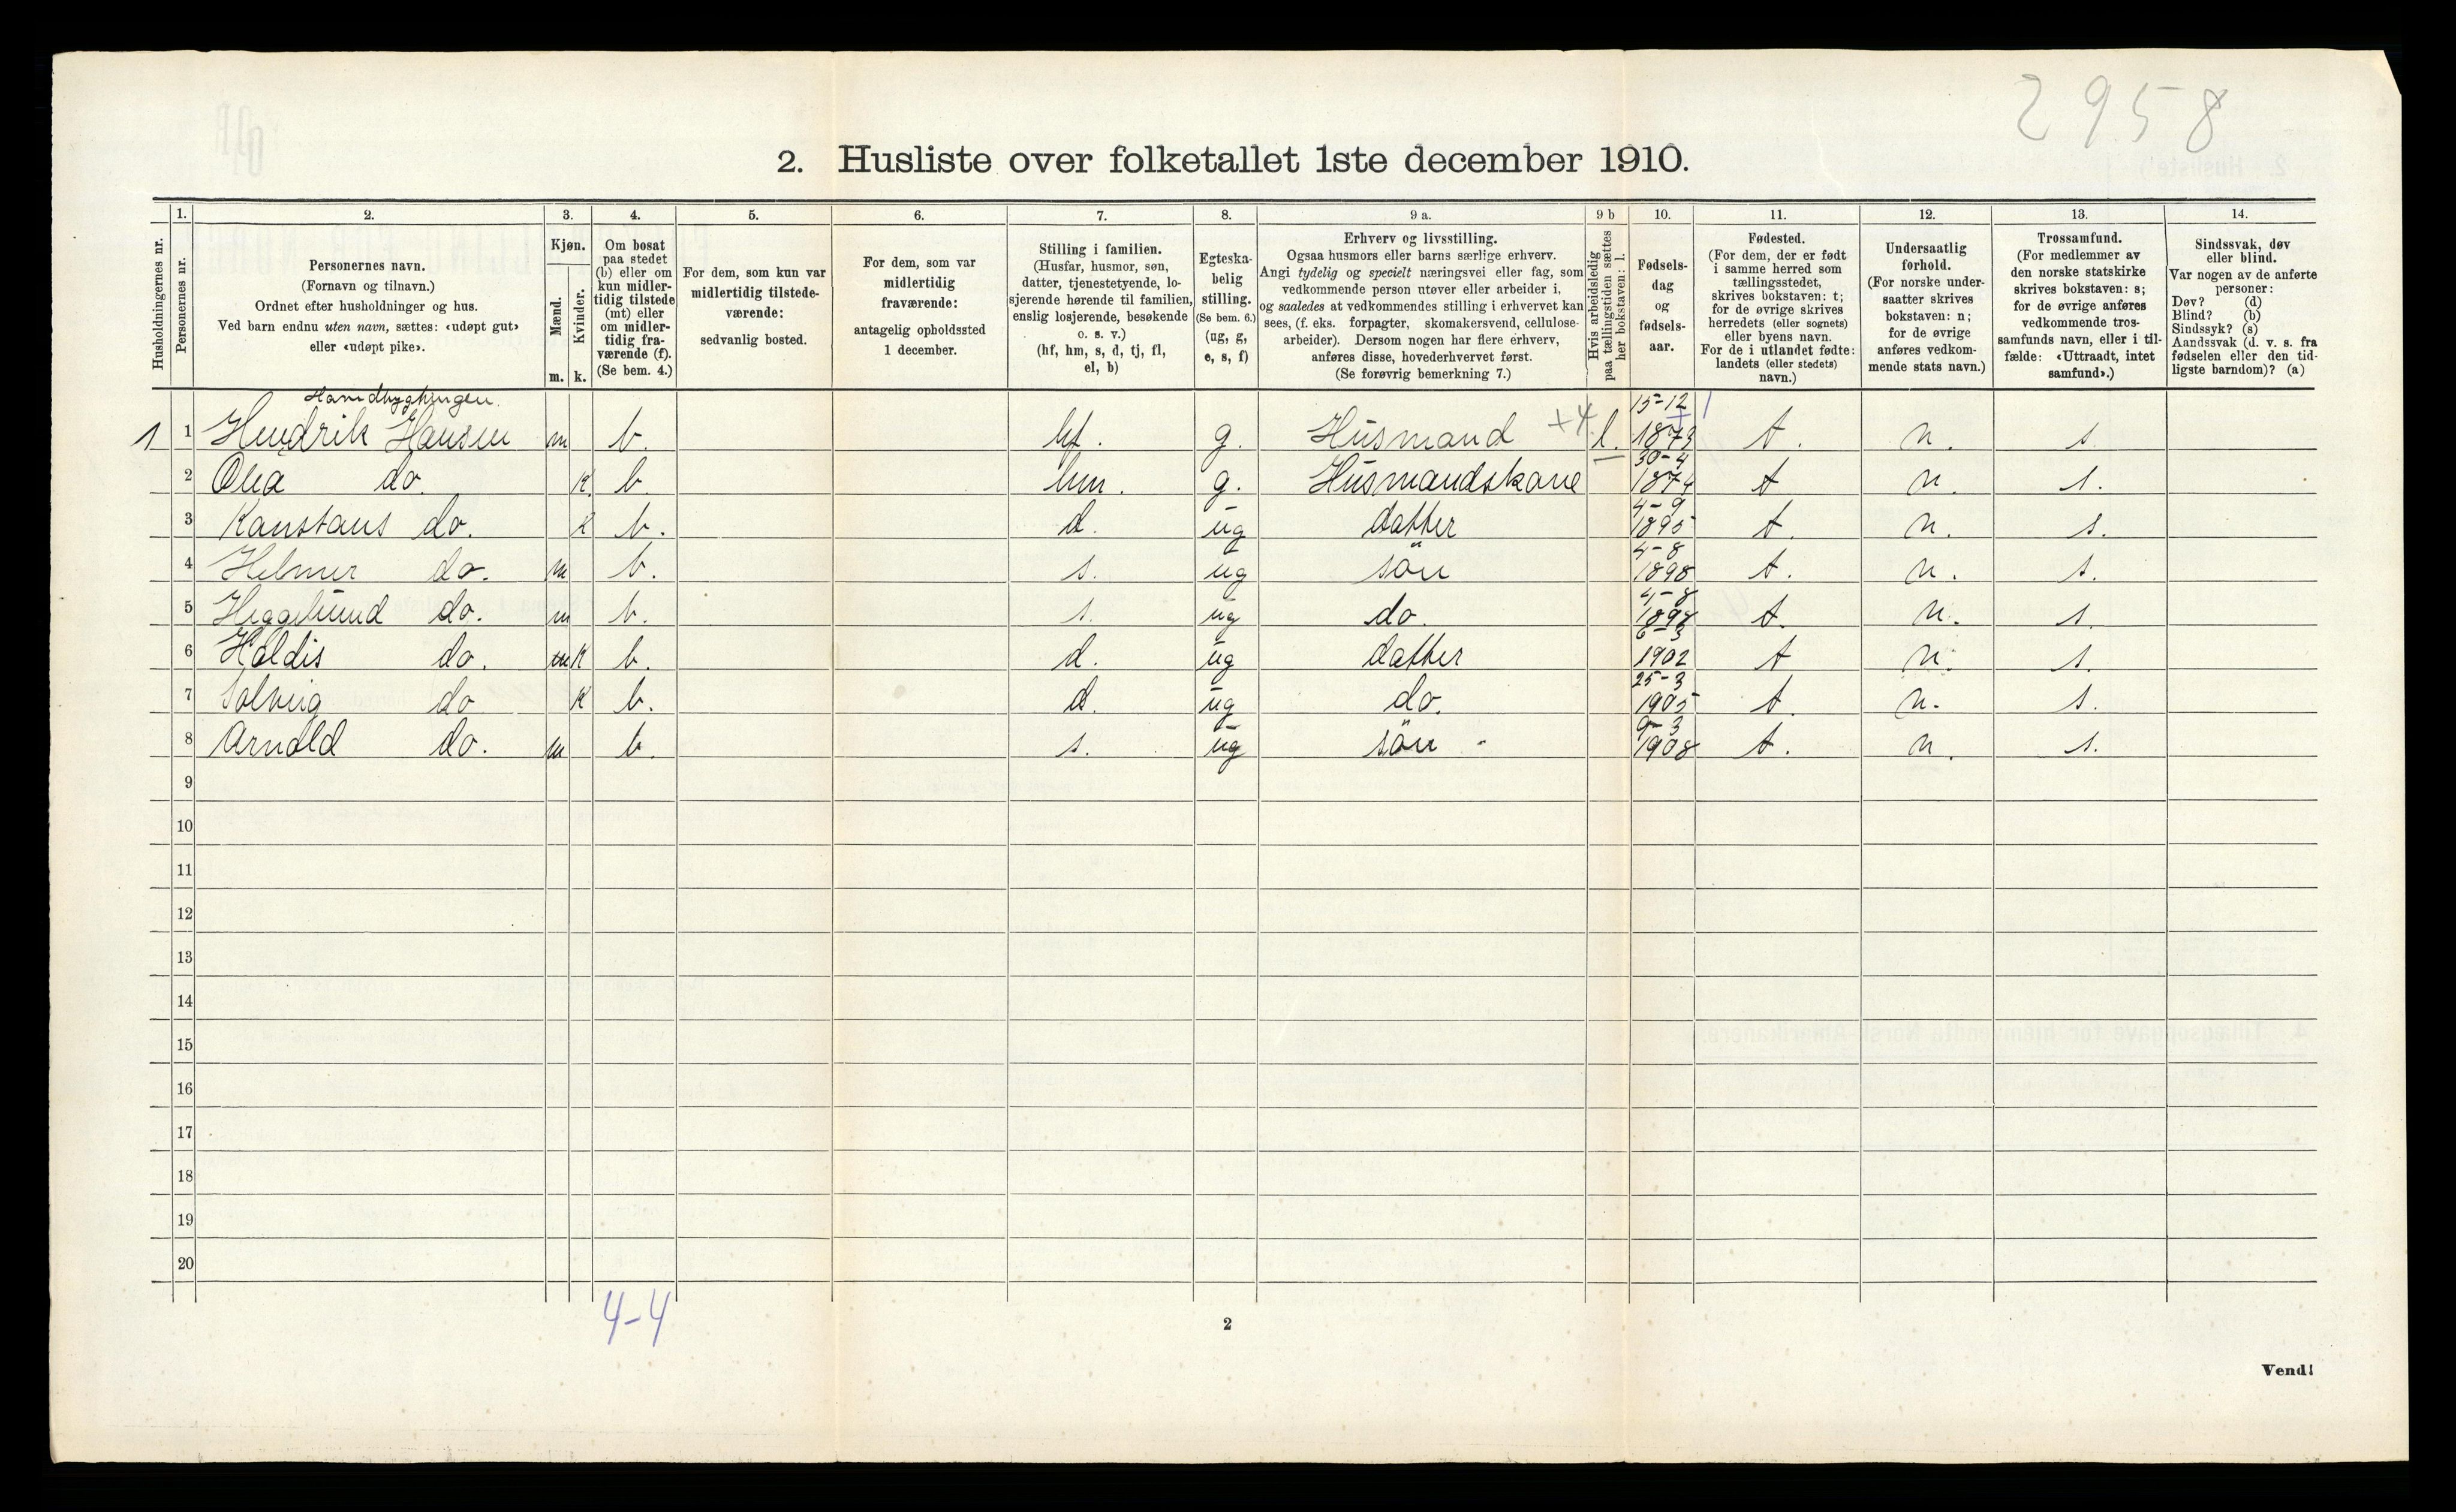 2958
2. Husliste over folketallet 1ste december 1910.
Husholdningernes nr.
1.
Personernes nr.
2.
Personernes navn.
(Fornavn og tilnavn.)
Ordnet efter husholdninger og hus.
Ved barn endnu uten navn, sættes: «udøpt gut»
eller «udøpt pike».
3.
Kjøn.
Mænd.
Kvinder.
m. k.
4.
Om bosat
paa stedet
(b) eller om
kun midler-
tidig tilstede
(mt) eller
om midler-
tidig fra-
værende (f).
(Se bem. 4.)
5.
For dem, som kun var
midlertidig tilstede-
værende:
sedvanlig bosted.
6.
For dem, som var
midlertidig
fraværende:
antagelig opholdssted
1 december.
7.
Stilling i familien.
(Husfar, husmor, søn,
datter, tjenestetyende, lo-
sjerende hørende til familien,
enslig losjerende, besøkende
o. s. v.)
(hf, hm, s, d, tj, fl,
el, b)
8.
Egteska-
belig
stilling.
(Se bem. 6.)
(ug, g,
e, s, f)
9 a.
Erhverv og livsstilling.
Ogsaa husmors eller barns særlige erhverv.
Angi tydelig og specielt næringsvei eller fag, som
vedkommende person utøver eller arbeider i,
og saaledes at vedkommendes stilling i erhvervet kan
sees, (f. eks. forpagter, skomakersvend, cellulose-
arbeider). Dersom nogen har flere erhverv,
anføres disse, hovederhvervet først.
(Se forøvrig bemerkning 7.)
9 b
Hvis arbeidsledig
paa tællingstiden sættes
her bokstaven: l.
10.
Fødsels-
dag
og
fødsels-
aar.
11.
Fødested.
(For dem, der er født
i samme herred som
tællingsstedet,
skrives bokstaven: t;
for de øvrige skrives
herredets (eller sognets)
eller byens navn.
For de i utlandet fødte:
landets (eller stedets)
navn.)
12.
Undersaatlig
forhold.
(For norske under-
saatter skrives
bokstaven: n;
for de øvrige
anføres vedkom-
mende stats navn.)
13.
Trossamfund.
(For medlemmer av
den norske statskirke
skrives bokstaven: s;
for de øvrige anføres
vedkommende tros-
samfunds navn, eller i til-
fælde: «Uttraadt, intet
samfund».)
14.
Sindssvak, døv
eller blind.
Var nogen av de anførte
personer:
Døv? (d)
Blind? (b)
Sindssyk? (s)
Aandssvak (d. v. s. fra
fødselen eller den tid-
ligste barndom)? (a)
1 1 Hendrik Hansen m b. hf. g. Husmand +4. l. 15-12 1873 t. n. s.
2 do. K. b. hm. g. Husmandskone 30-4 1874 t n. s.
3 Kanstans do. K b. d. ug datter 4-9 1895 t. n. s.
4 Helmer do. m b. s. ug sön 4-8 1898 t. n. s.
5 Heggelund do. m b. s. ug do. 4-8 1898 t. n. s.
6 Haldis do. K b. d. ug datter 6-3 1902 t n. s.
7 Solveig do K b. d. ug do. 25-3 1905 t. n. s.
8 Arnold do. m b. s. ug sön 9-3 1908 t. n. s.
9
10
11
12
13
14
15
16
17
18
19
20
4-4
2
Vend!